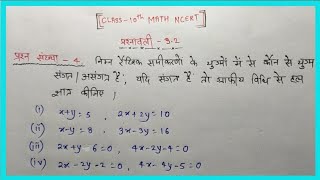 [CLASS-10th MATH NCERT]
प्रश्नावली - 3.2
प्रश्न संख्या - 4. निम्न रैखिक समीकरणों के युग्मों में से कौन से युग्म
संगत / असंगत हैं, यदि संगत हैं तो ग्राफीय विधि से हल
ज्ञात कीजिए।
(i) x+y=5, 2x+2y=10
(ii) x-y=8, 3x-3y=16
(iii) 2x+y-6=0, 4x-2y-4=0
(iv) 2x-2y-2=0, 4x-4y-5=0